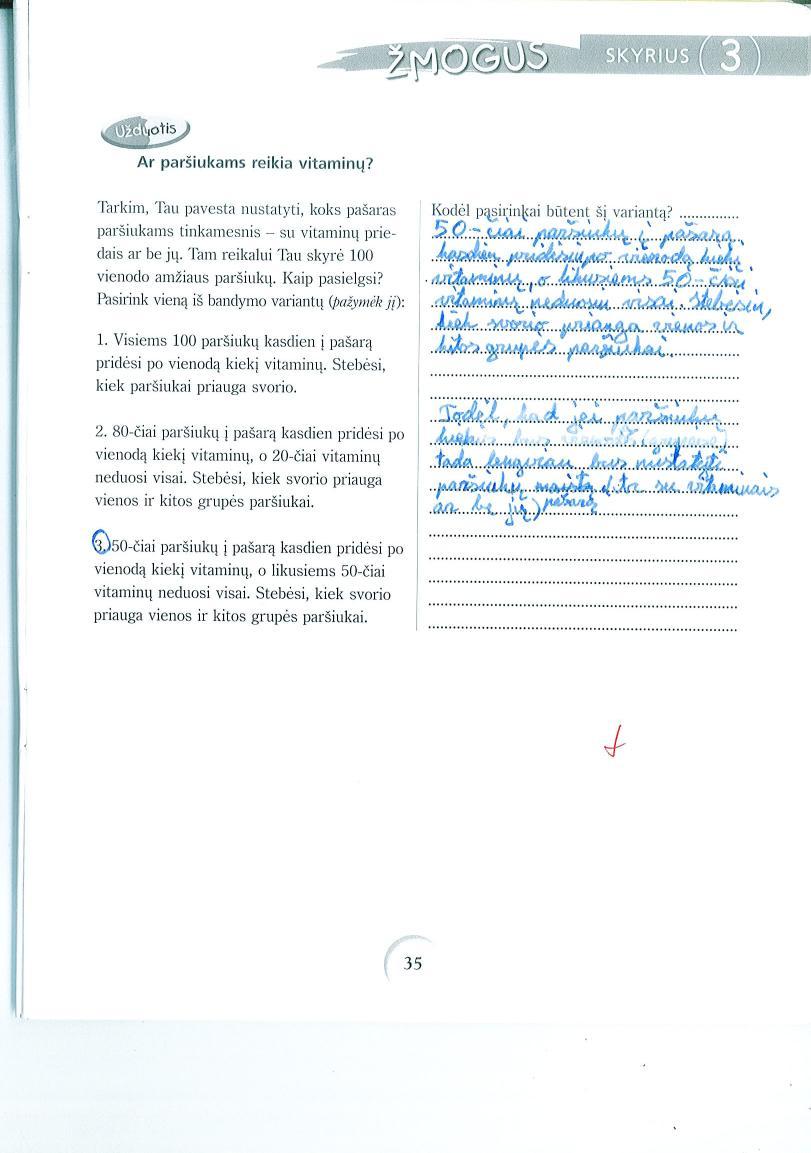 ŽMOGUS SKYRIUS 3
Užduotis
Ar paršiukams reikia vitaminų?
Tarkim, Tau pavesta nustatyti, koks pašaras
paršiukams tinkamesnis – su vitaminų prie-
dais ar be jų. Tam reikalui Tau skyrė 100
vienodo amžiaus paršiukų. Kaip pasielgsi?
Pasirink vieną iš bandymo variantų (pažymėk jį):
1. Visiems 100 paršiukų kasdien į pašarą
pridėsi po vienodą kiekį vitaminų. Stebėsi,
kiek paršiukai priauga svorio.
2. 80-čiai paršiukų į pašarą kasdien pridėsi po
vienodą kiekį vitaminų, o 20-čiai vitaminų
neduosi visai. Stebėsi, kiek svorio priauga
vienos ir kitos grupės paršiukai.
3. 50-čiai paršiukų į pašarą kasdien pridėsi po
vienodą kiekį vitaminų, o likusiems 50-čiai
vitaminų neduosi visai. Stebėsi, kiek svorio
priauga vienos ir kitos grupės paršiukai.
Kodėl pasirinkai būtent šį variantą?
50-čiai paršiukų į pašarą
kasdien pridėsiu po vienodą kiekį
vitaminų, o likusiems 50-čiai
vitaminų neduosiu visai. Stebėsiu,
kiek svorio priauga vienos ir
kitos grupės paršiukai.
Todėl, kad jei paršiukų
kiekis bus
tada lengviau bus nustatyti
paršiukų maistą (ta su vitaminais
ar be jų) pašarą
35